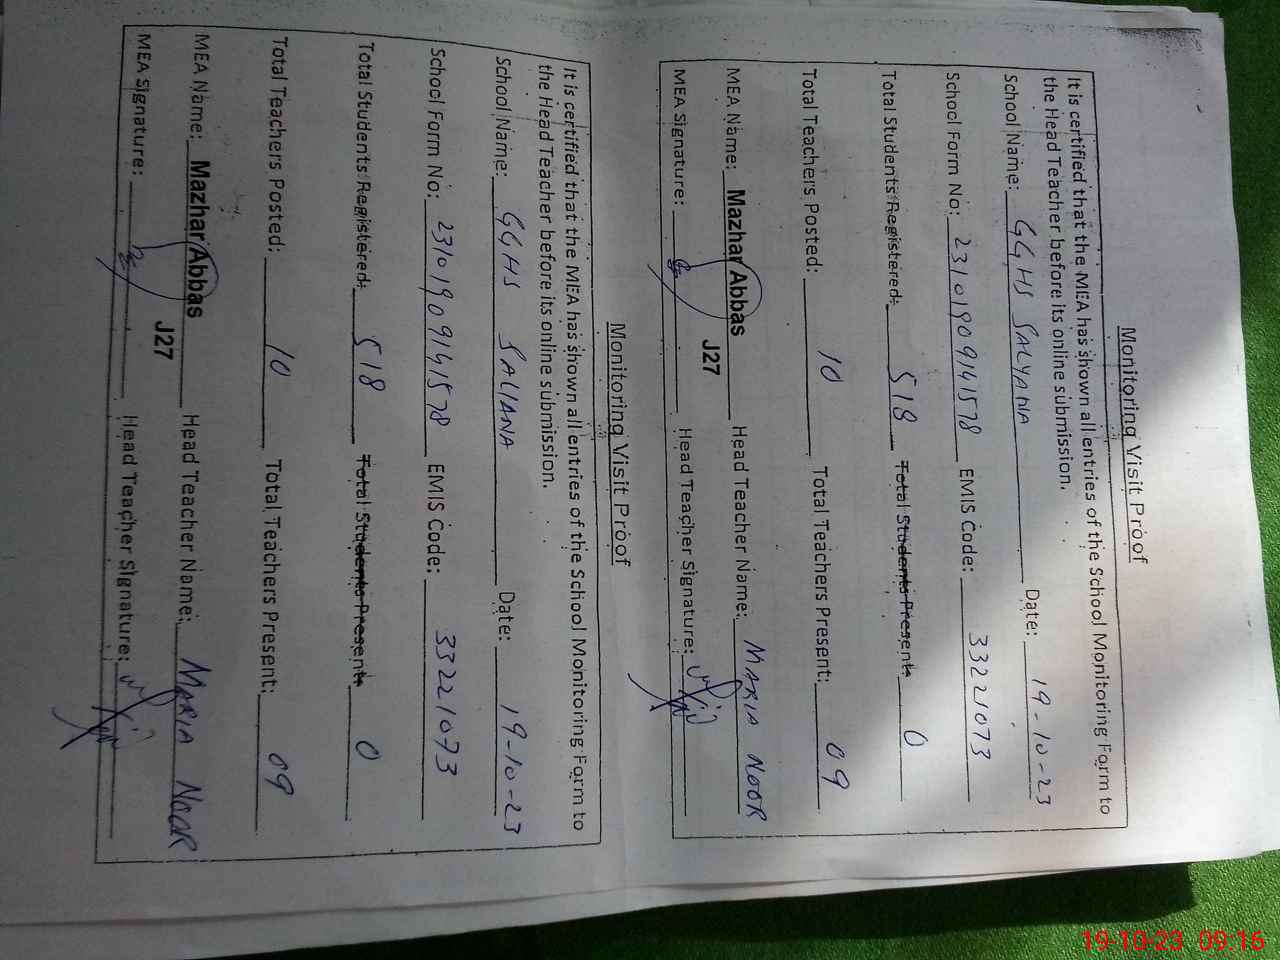 Monitoring Visit Proof
It is certified that the MEA has shown all entries of the School Monitoring Form to
the Head Teacher before its online submission.
School Name: GGHS SALYANA Date: 19-10-23
School Form No: 23101909141578 EMIS Code: 33221073
Total Students Registered: 518 Total Students Present: 0
Total Teachers Posted: 10 Total Teachers Present: 09
MEA Name: Mazhar Abbas Head Teacher Name: MARIA NOOR
J27
MEA Signature: Head Teacher Signature:
Monitoring Visit Proof
It is certified that the MEA has shown all entries of the School Monitoring Form to
the Head Teacher before its online submission.
School Name: GGHS SALIANA Date: 19-10-23
School Form No: 23101909141578 EMIS Code: 33221073
Total Students Registered: 518 Total Students Present: 0
Total Teachers Posted: 10 Total Teachers Present: 09
MEA Name: Mazhar Abbas Head Teacher Name: MARIA NOOR
J27
MEA Signature: Head Teacher Signature:
19-10-23 09:16